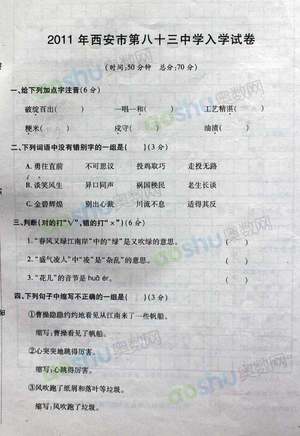 2011年西安市第八十三中学入学试卷
(时间:50分钟 总分:70分)
一、给下列加点字注音(6分)
破绽百出( ) 一唱一和( ) 工艺精湛( )
粳米( ) 戍守( ) 油渍( )
二、下列词语中没有错别字的一组是( )(3分)
A. 勇往直前 不可思议 投鸡取巧 走投无路
B. 谈笑风生 异口同声 祸国秧民 老生长谈
C. 金碧辉煌 别出心裁 川流不息 适得其反
三、判断(对的打“√”,错的打“×”)(6分)
1. “春风又绿江南岸”中的“绿”是又吹绿的意思。 ( )
2. “盛气凌人”中“凌”是“杂乱”的意思。 ( )
3. “花儿”的音节是 huā ér。 ( )
四、下列句子中缩写不正确的一组是( )(3分)
①曹操隐隐约约地看见从江南来了一些帆船。
缩写:曹操看见了帆船。
②心突突地跳得厉害。
缩写:心跳得厉害。
③风吹跑了纸屑和落叶等垃圾。
缩写:风吹跑了垃圾。
aoshu奥数网